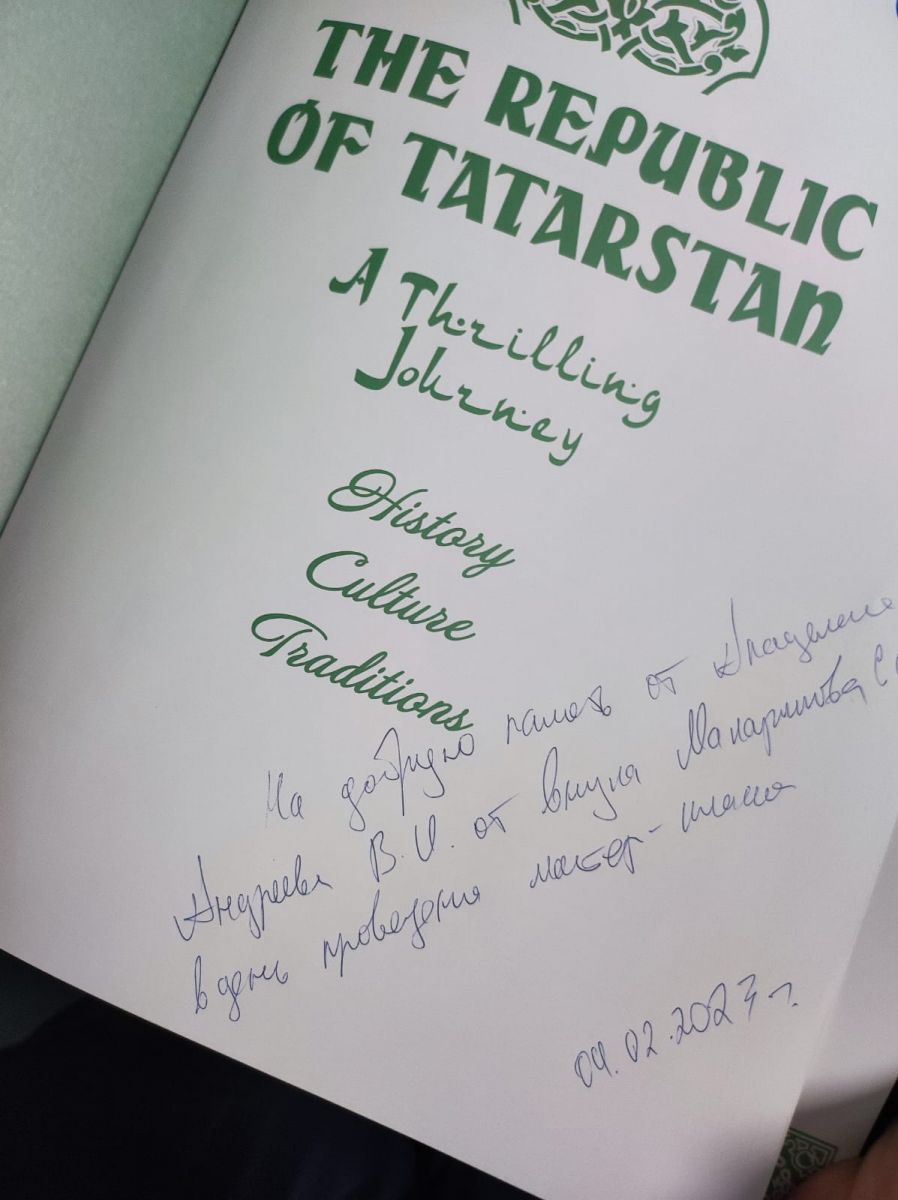 THE REPUBLIC
OF TATARSTAN
A Thrilling
Journey
History
Culture
Traditions
На добрую память от Академика
Андреева В.И. от внука Макаримова
в день проведения мастер-класса
04.02.2023 г.